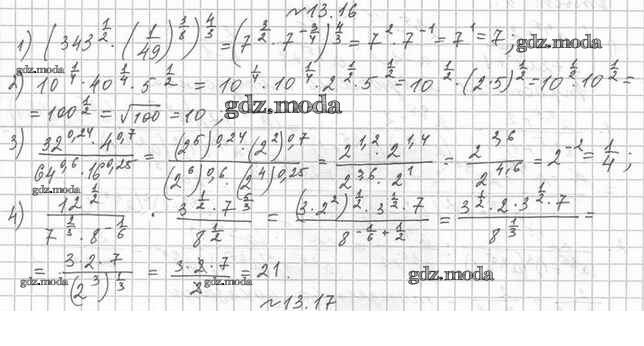 №13.16
1) (343^(1/2) · (1/49)^(3/8))^(4/3) = (7^(3/2) · 7^(-3/4))^(4/3) = 7^2 · 7^(-1) = 7^1 = 7; gdz.moda
gdz.moda
2) 10^(1/4) · 40^(1/4) · 5^(1/2) = 10^(1/4) · 10^(1/4) · 2^(1/2) · 5^(1/2) = 10^(1/2) · (2·5)^(1/2) = 10^(1/2) · 10^(1/2) =
= 100^(1/2) = √100 = 10; gdz.moda
3) (32^(0,24) · 4^(0,7))/(64^(0,6) · 16^(0,25)) = ((2^5)^(0,24) · (2^2)^(0,7))/((2^6)^(0,6) · (2^4)^(0,25)) = (2^(1,2) · 2^(1,4))/(2^(3,6) · 2^1) = 2^(2,6)/2^(4,6) = 2^(-2) = 1/4;
gdz.moda
4) 12^(1/2)/(7^(2/3) · 8^(-1/6)) · (3^(1/2) · 7^(5/3))/8^(1/2) = ((3·2^2)^(1/2) · 3^(1/2) · 7)/8^(-1/6+1/2) = (3^(1/2) · 2 · 3^(1/2) · 7)/8^(1/3) =
= (3·2·7)/(2^3)^(1/3) = (3·2·7)/2 = 21.
gdz.moda gdz.moda gdz.moda
№13.17